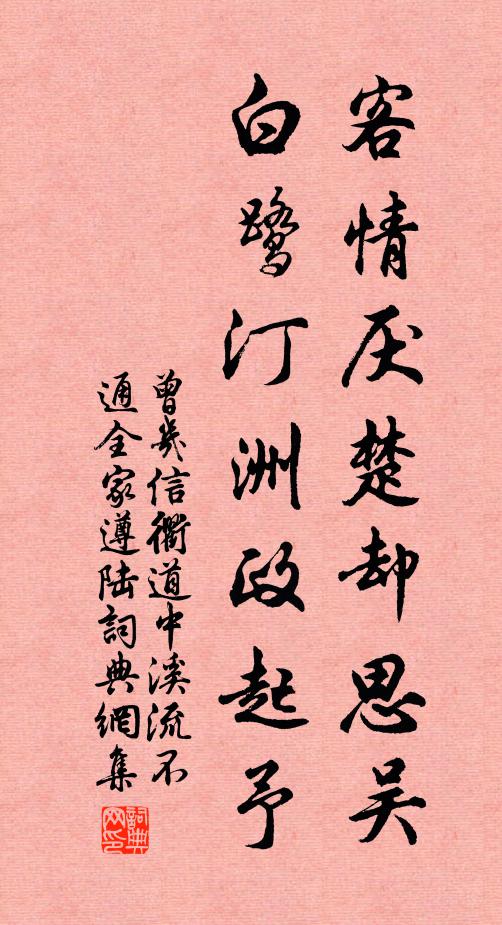 客情厌楚却思吴
白鹭汀洲政起予
曾几信衢道中溪流不
通全家遵陆词典網集
詞典网印